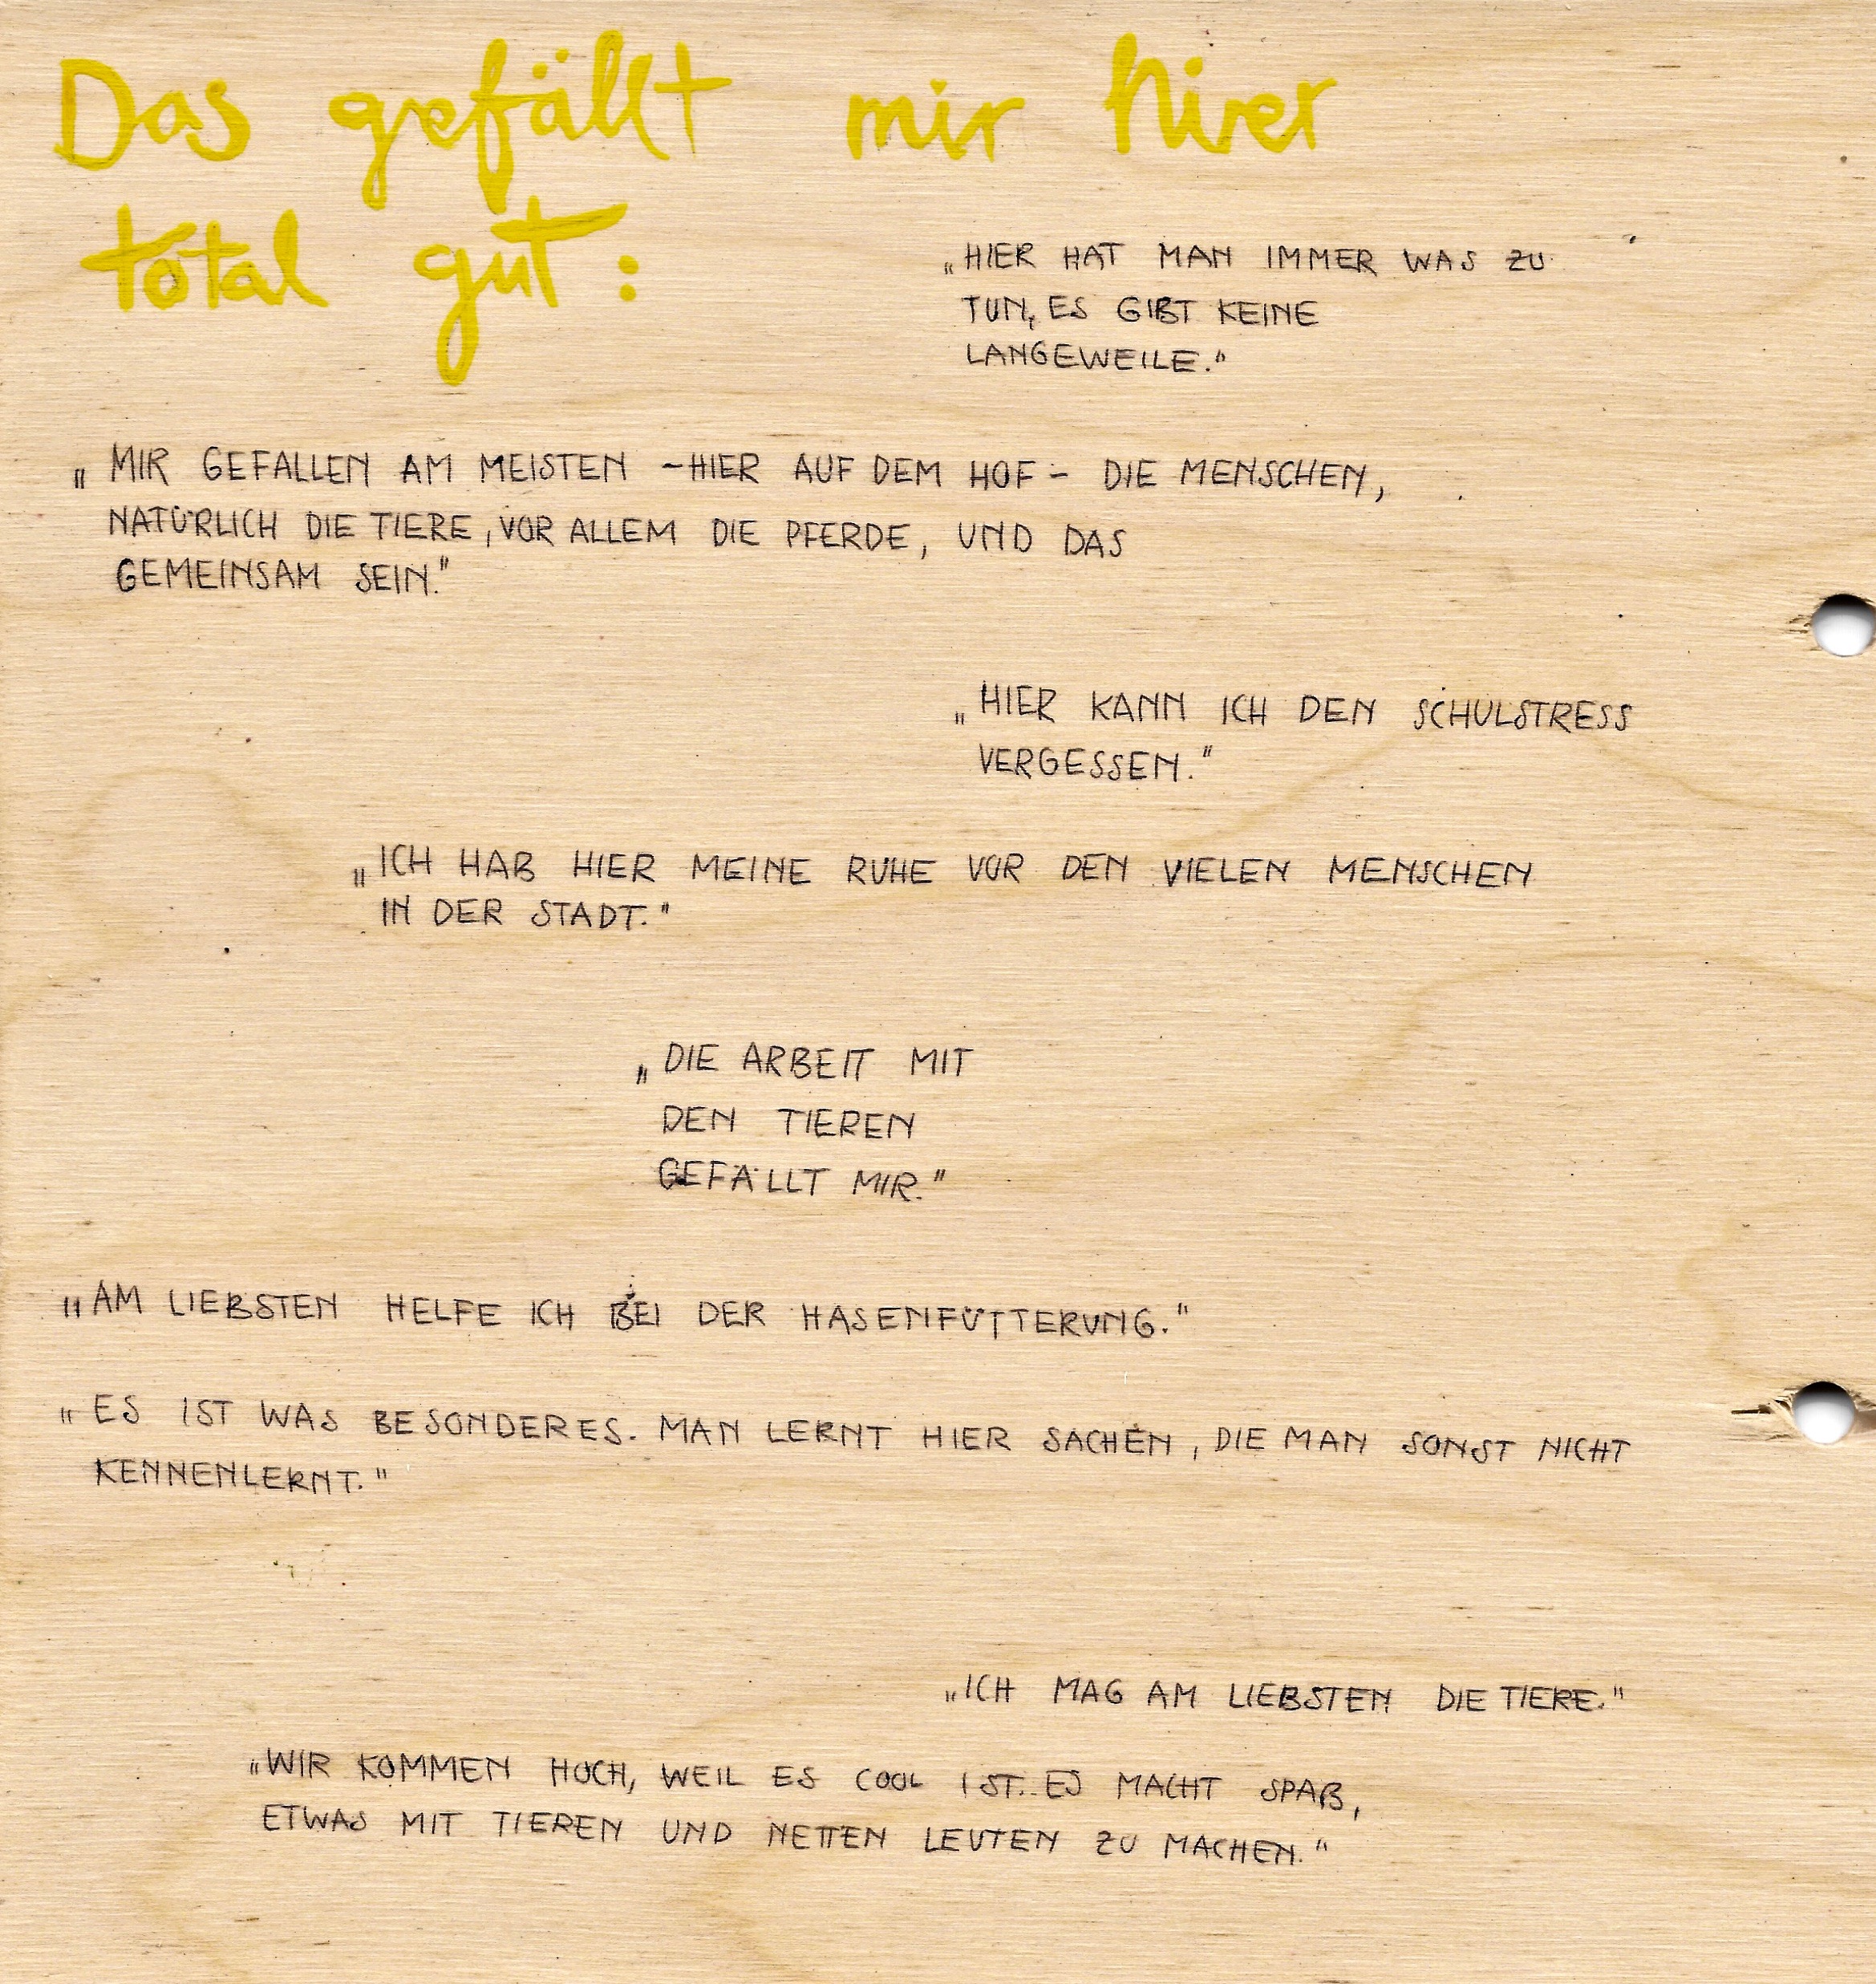 Das gefällt mir hier
total gut:
„HIER HAT MAN IMMER WAS ZU
TUN, ES GIBT KEINE
LANGEWEILE."
„MIR GEFALLEN AM MEISTEN -HIER AUF DEM HOF- DIE MENSCHEN,
NATÜRLICH DIE TIERE, VOR ALLEM DIE PFERDE, UND DAS
GEMEINSAM SEIN."
„HIER KANN ICH DEN SCHULSTRESS
VERGESSEN."
„ICH HAB HIER MEINE RUHE VOR DEN VIELEN MENSCHEN
IN DER STADT."
„DIE ARBEIT MIT
DEN TIEREN
GEFÄLLT MIR."
„AM LIEBSTEN HELFE ICH BEI DER HASENFÜTTERUNG."
„ES IST WAS BESONDERES. MAN LERNT HIER SACHEN, DIE MAN SONST NICHT
KENNENLERNT."
„ICH MAG AM LIEBSTEN DIE TIERE."
„WIR KOMMEN HOCH, WEIL ES COOL IST. ES MACHT SPAß,
ETWAS MIT TIEREN UND NETTEN LEUTEN ZU MACHEN."